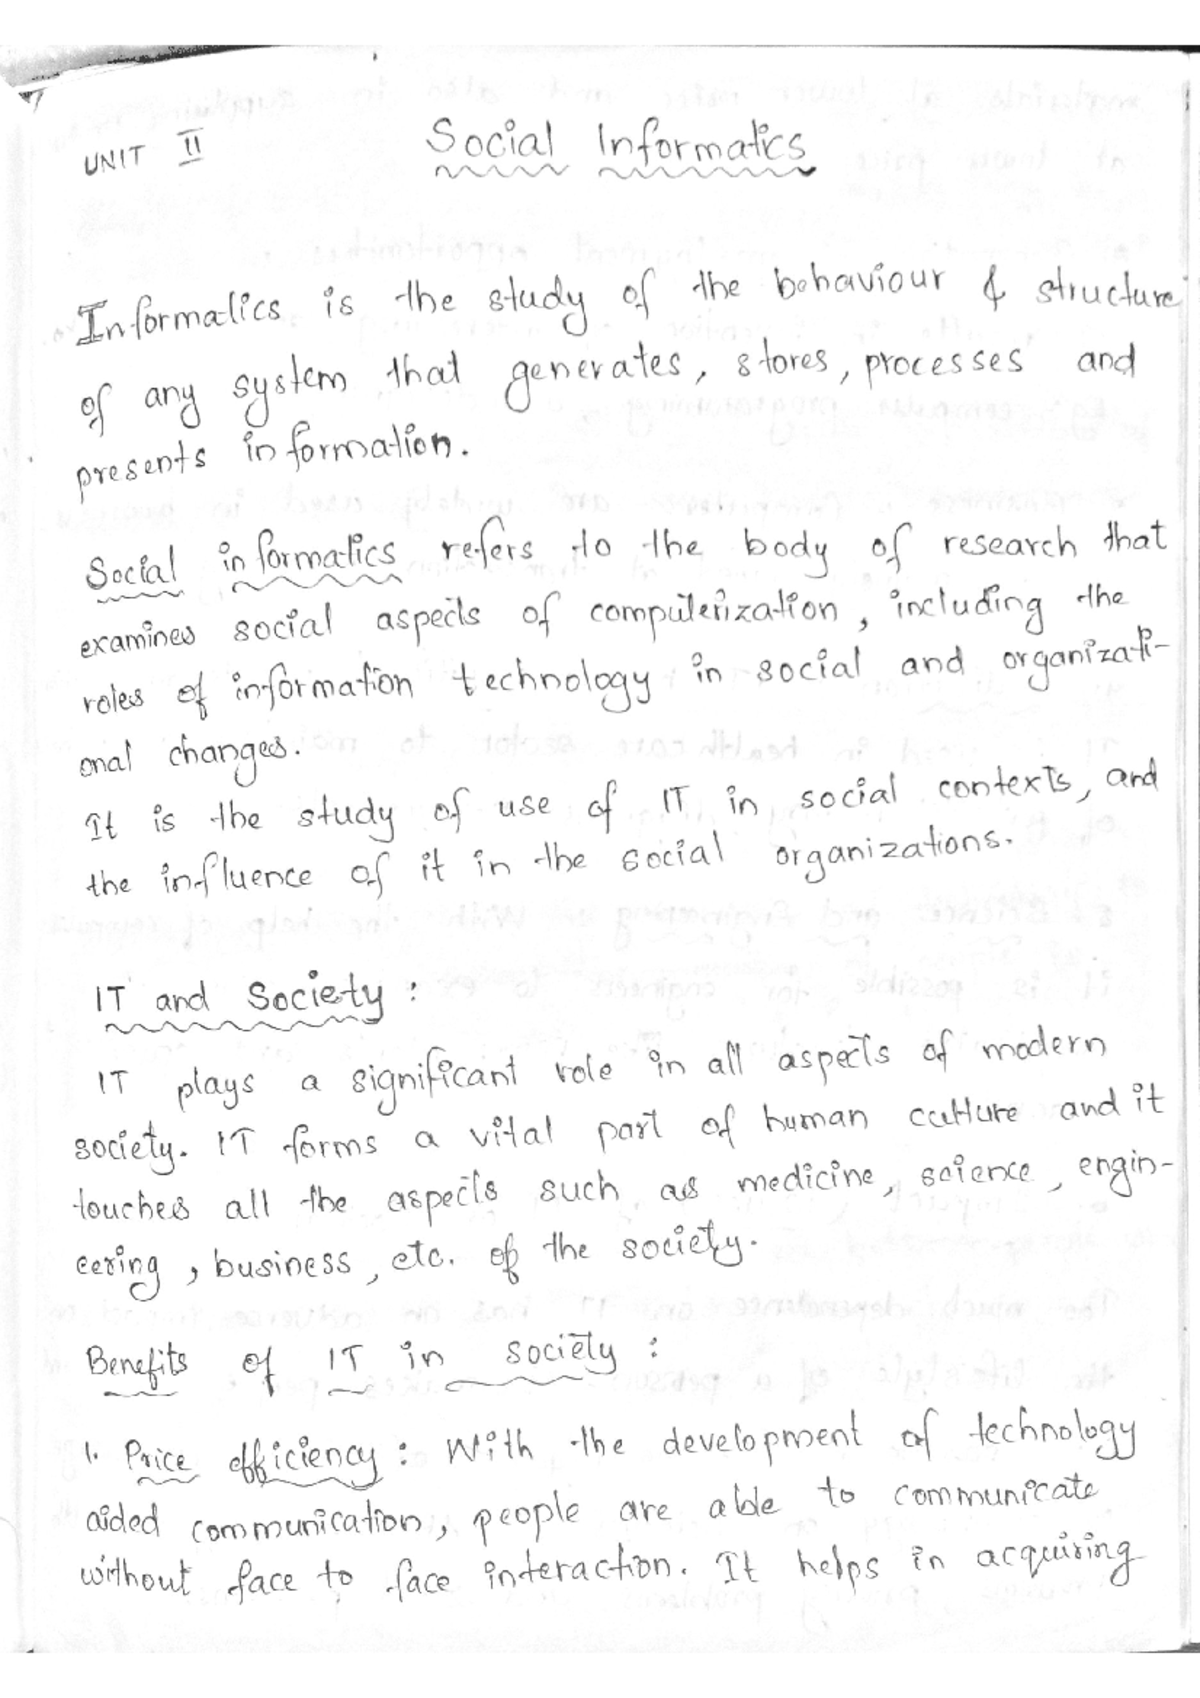 UNIT II Social Informatics
Informatics is the study of the behaviour & structure
of any system that generates, stores, processes and
presents information.
Social informatics refers to the body of research that
examines social aspects of computerization, including the
roles of information technology in social and organizati-
onal changes.
It is the study of use of IT in social contexts, and
the influence of it in the social organizations.
IT and Society :
IT plays a significant role in all aspects of modern
society. IT forms a vital part of human culture and it
touches all the aspects such as medicine, science, engin-
eering, business, etc. of the society.
Benefits of IT in society :
1. Price efficiency : With the development of technology
aided communication, people are able to communicate
without face to face interaction. It helps in acquiring